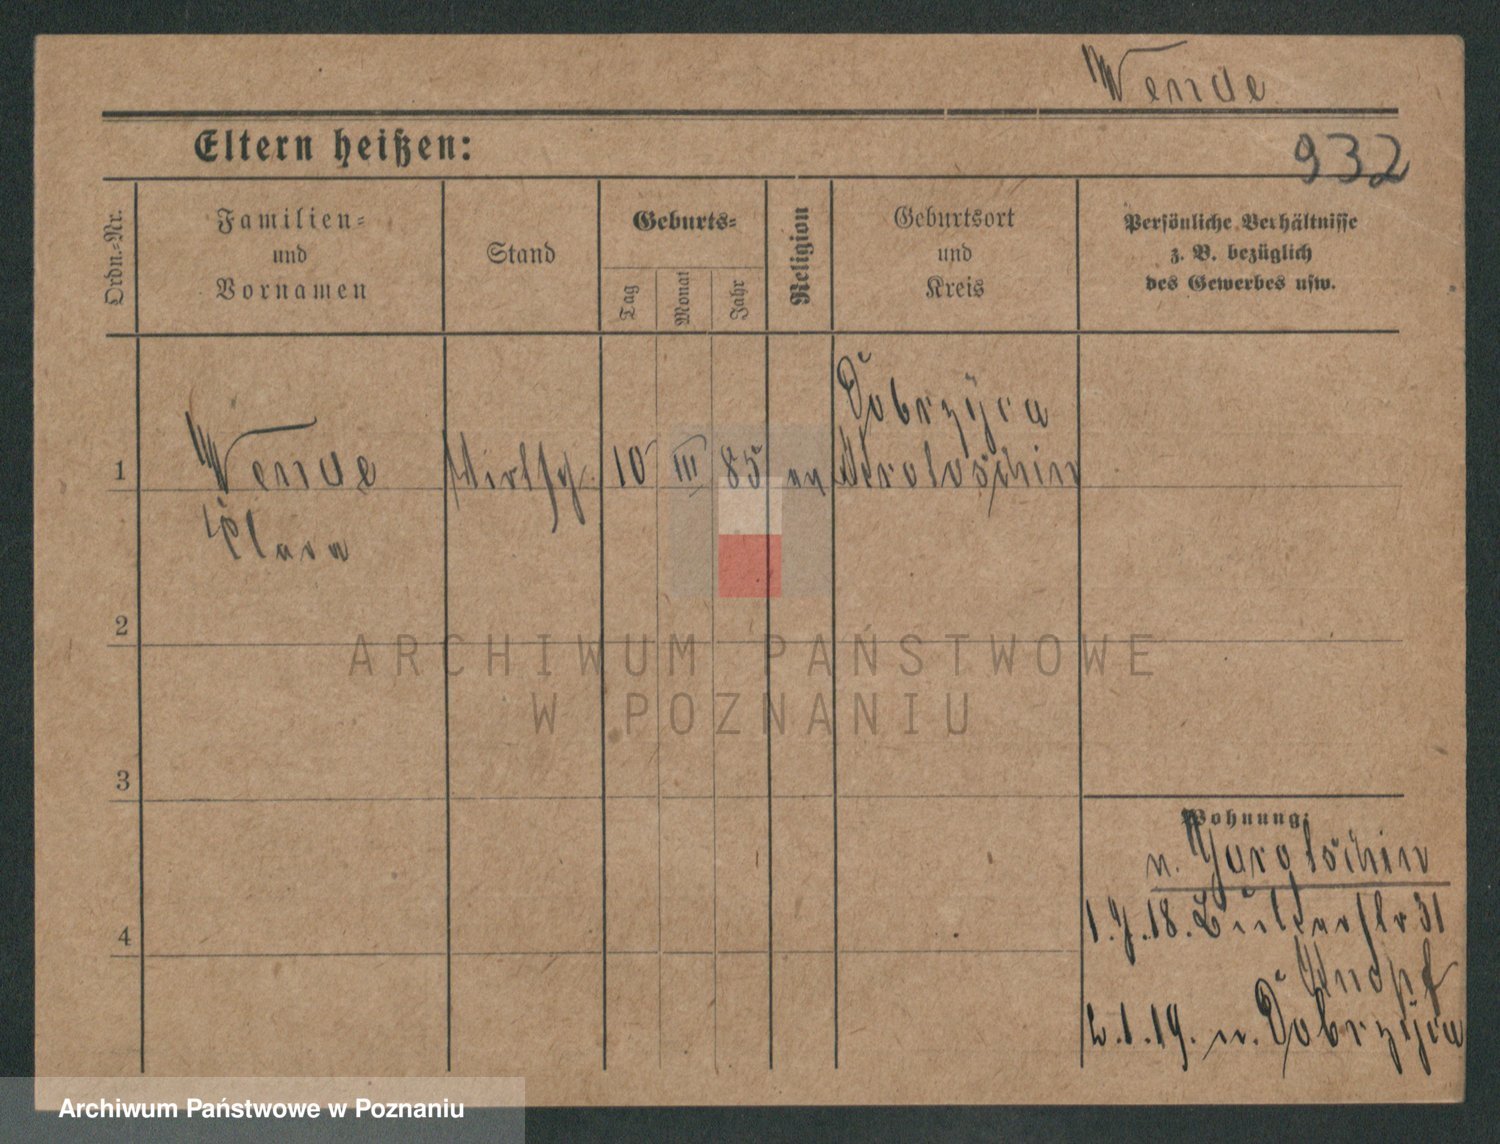 Wende
932
Eltern heißen:
Ordn.-Nr.
Familien-
und
Vornamen
Stand
Geburts-
Tag
Monat
Jahr
Religion
Geburtsort
und
Kreis
Persönliche Verhältnisse
z. B. bezüglich
des Gewerbes usw.
1
Wende
Clara
Wirtsch.
10
III
85
ev
Dobrzyca
Krotoschin
2
3
4
Wohnung:
n. Jarotschin
1. 18. 31
Knopf
2.1.19. n. Dobrzyca
ARCHIWUM PAŃSTWOWE
W POZNANIU
Archiwum Państwowe w Poznaniu